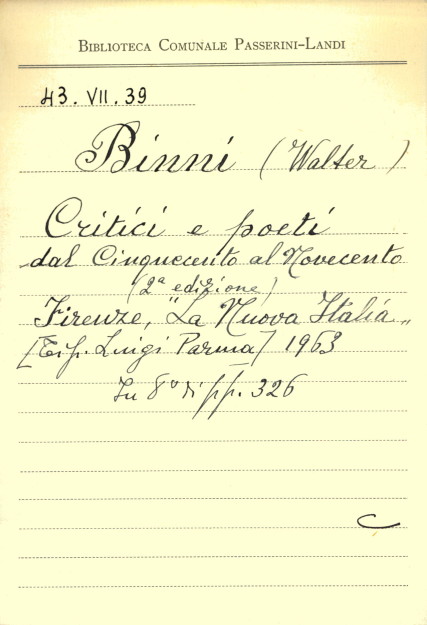 BIBLIOTECA COMUNALE PASSERINI-LANDI
43. VII. 39
Binni (Walter)
Critici e poeti
dal Cinquecento al Novecento
(2ª edizione)
Firenze, "La Nuova Italia"
[Tip. Luigi Parma] 1963
In 8º di pp. 326
C